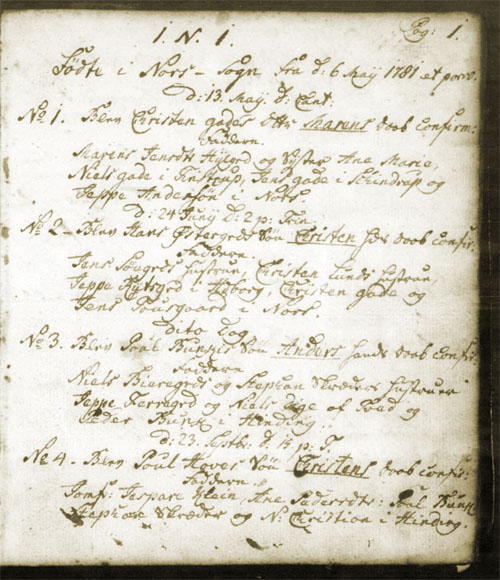 I. N. I.
Pag: 1.
Fødte i Nors - Sogn fra d: 6 Maij 1781 et porro.
D: 13. Maij. D: Cant:
No 1. Blev Christen gades Dttr Marens daab Confirm:
Faddern.
Marens og Søster Ane Marie,
Niels gade i Tinstrup, Jens gade i Skindrup og
Jeppe Andersøn i Nors.
D: 24 Junij D: 2 p: Trin.
No 2 - Blev Hans Østergrds Søn Christen hds daab Confir:
Faddern.
Jens Hustrue, Christen Lunds Hustrue,
Jeppe i Christen gade og
Jens Toursgaard i Nors.
Dito Dag.
No 3. Blev Poul Bunkis Søn Anders hands daab Confir:
Faddern
Niels Bieregrds og Stephan Skreders Hustruer
Jeppe og Niels af og
Peder Bunk i Hinding.
D: 23. Septb: d. 15 p: T.
No 4 - Blev Poul Høves Søn Christens daab Confir:
Faddern.
Jomf: Klein, Ane Poul Bunk
Stephan Skreder og N: Christian i Hinding.